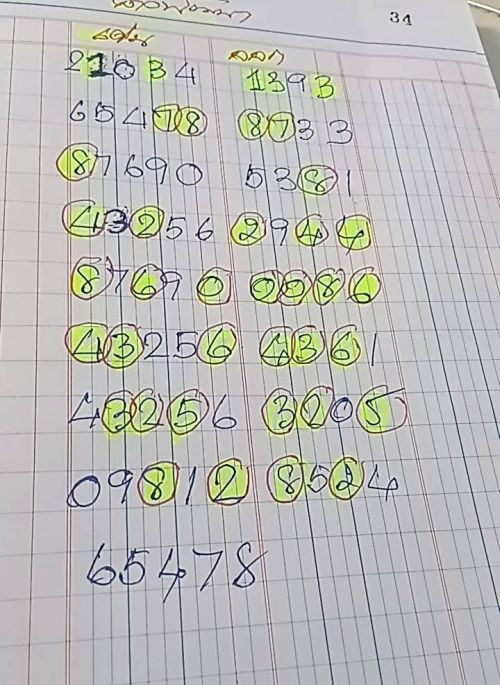 34
ເດັ່ນ ອອກ
21034 1393
65478 8733
87690 5381
43256 2944
87690 0086
43256 4361
43256 3205
09812 8524
65478